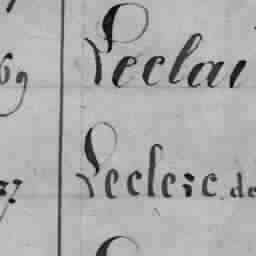 69 Leclai
Leclerc de